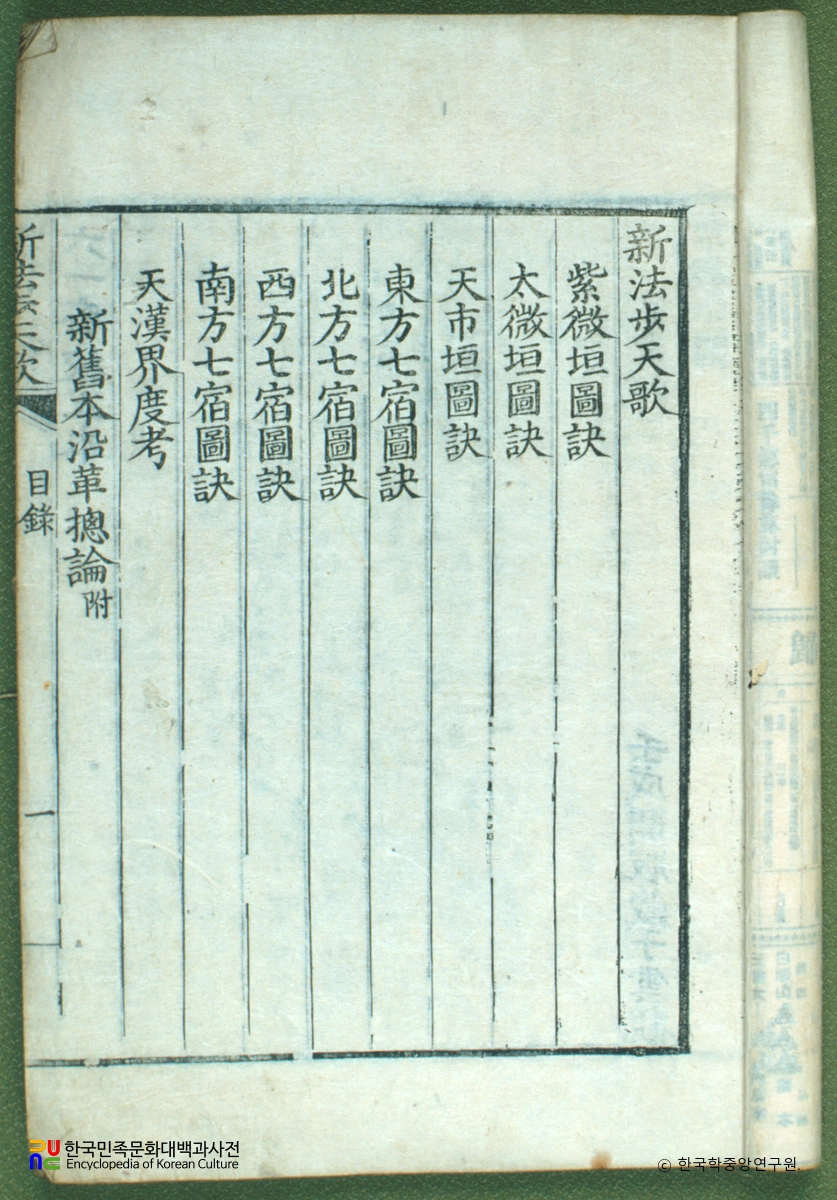 新法步天歌
紫微垣圖訣
太微垣圖訣
天市垣圖訣
東方七宿圖訣
北方七宿圖訣
西方七宿圖訣
南方七宿圖訣
天漢界度考
新舊本沿革摠論附
新法步天歌
目錄
一
한국민족문화대백과사전
Encyclopedia of Korean Culture
© 한국학중앙연구원.